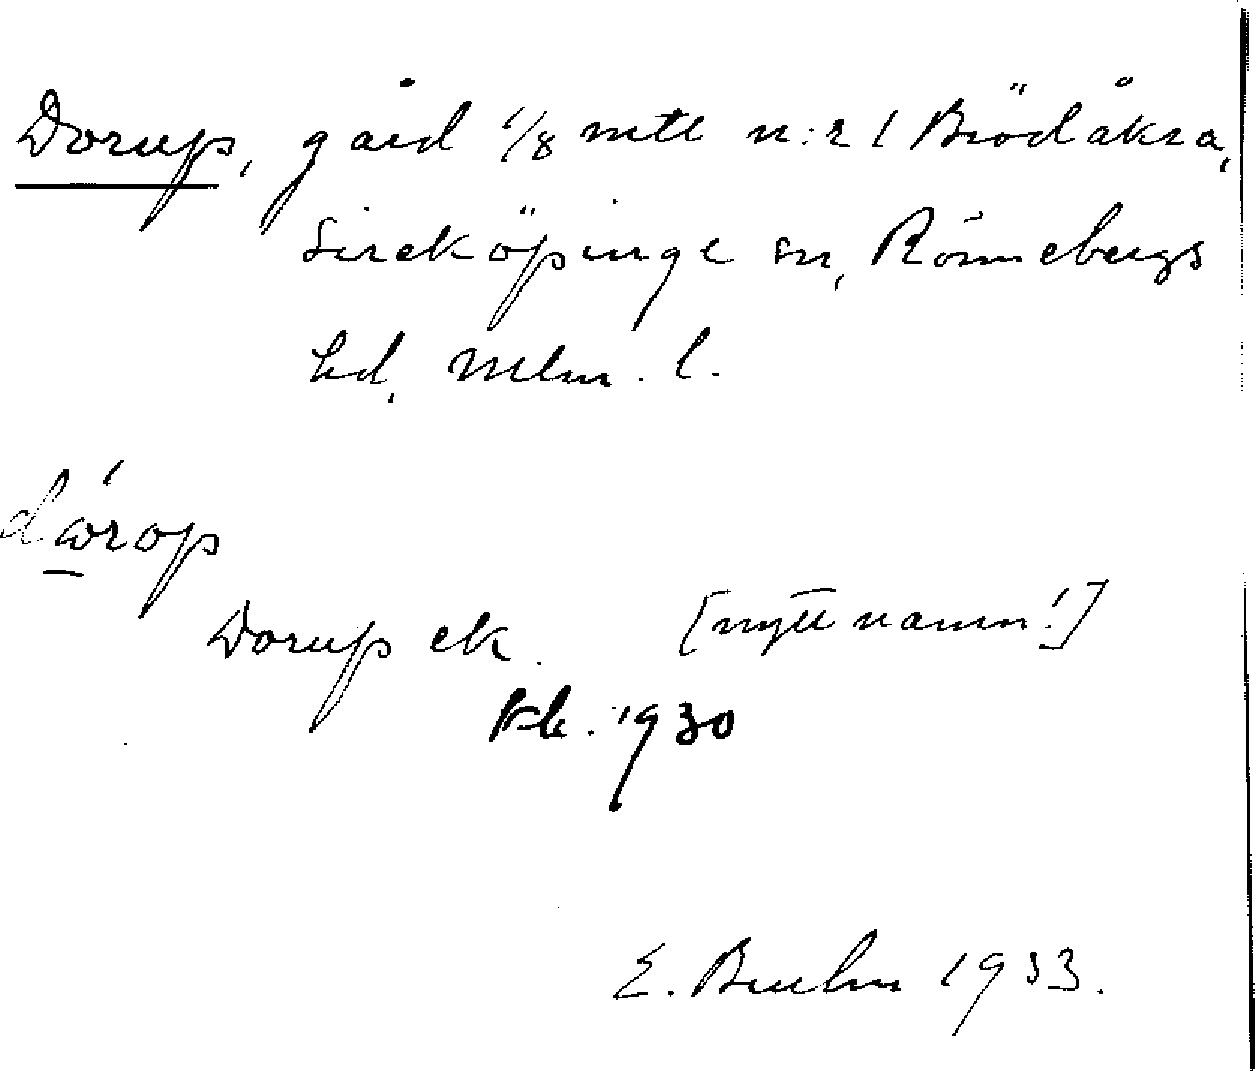 Dorup, gård 1/8 mtl n:r 1 Brödåkra,
Sireköpinge sn, Rönnebergs
hd, Mlm. l.
dórop
Dorup ek. [nytt namn!]
1930
E. Bruhn 1933.